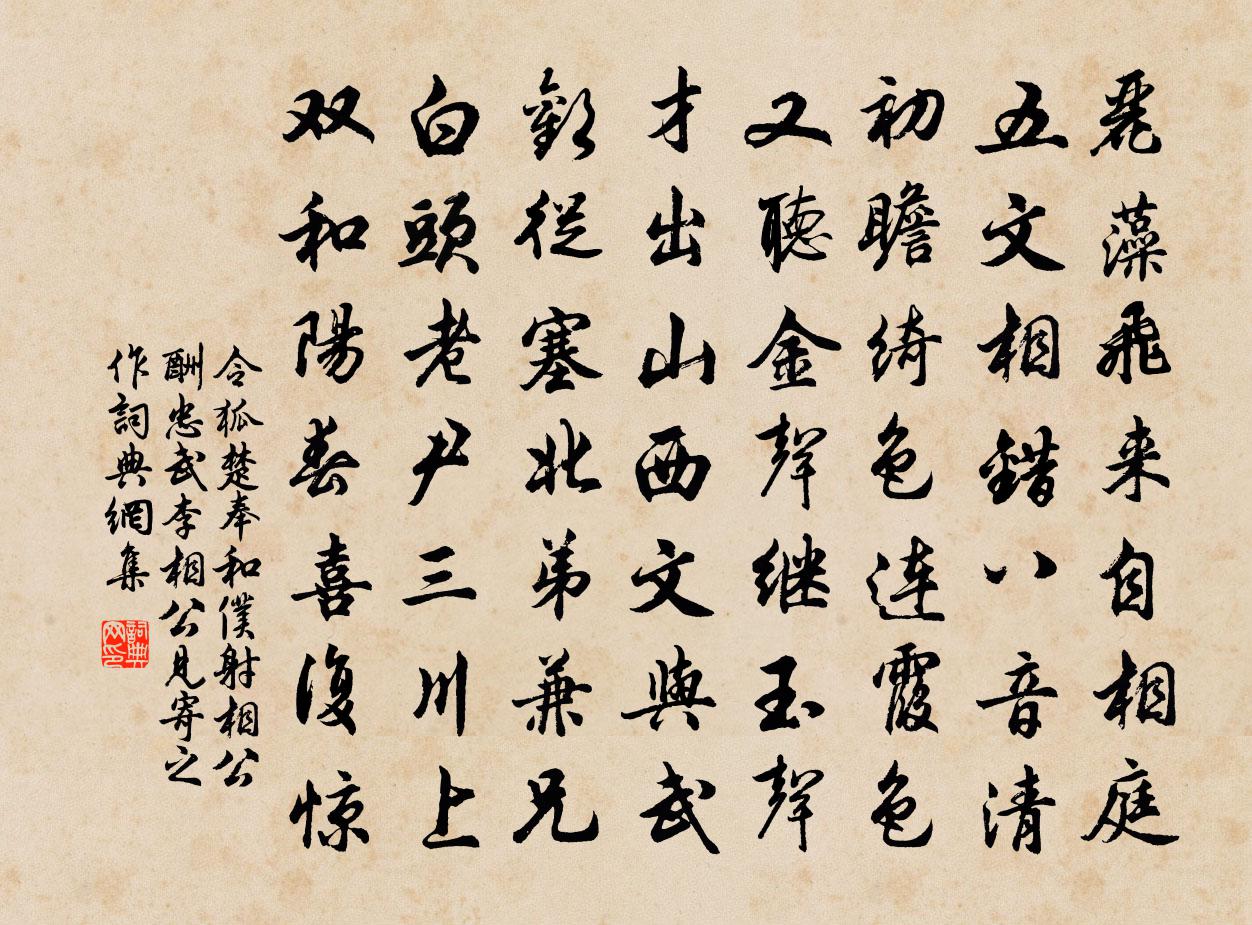 麗藻飛来自相庭
五文相錯八音清
初瞻綺色連霞色
又聽金聲继玉聲
才出山西文與武
歡從塞北弟兼兄
白頭老尹三川上
双和陽春喜復惊
令狐楚奉和僕射相公
酬忠武李相公見寄之
作詞典網集
詞典网印